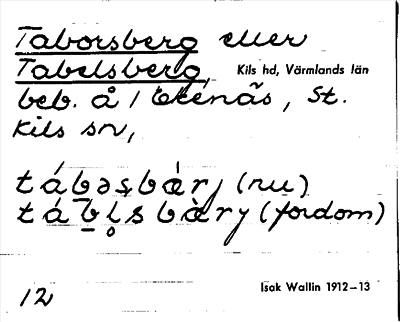 Taborsberg eller
Tabelsberg, Kils hd, Värmlands län
beb. å / Ekenäs, St.
Kils sn,
tábəṣbàrj (nu)
táb̲l̥sbàrj (fordom)
12 Isak Wallin 1912–13